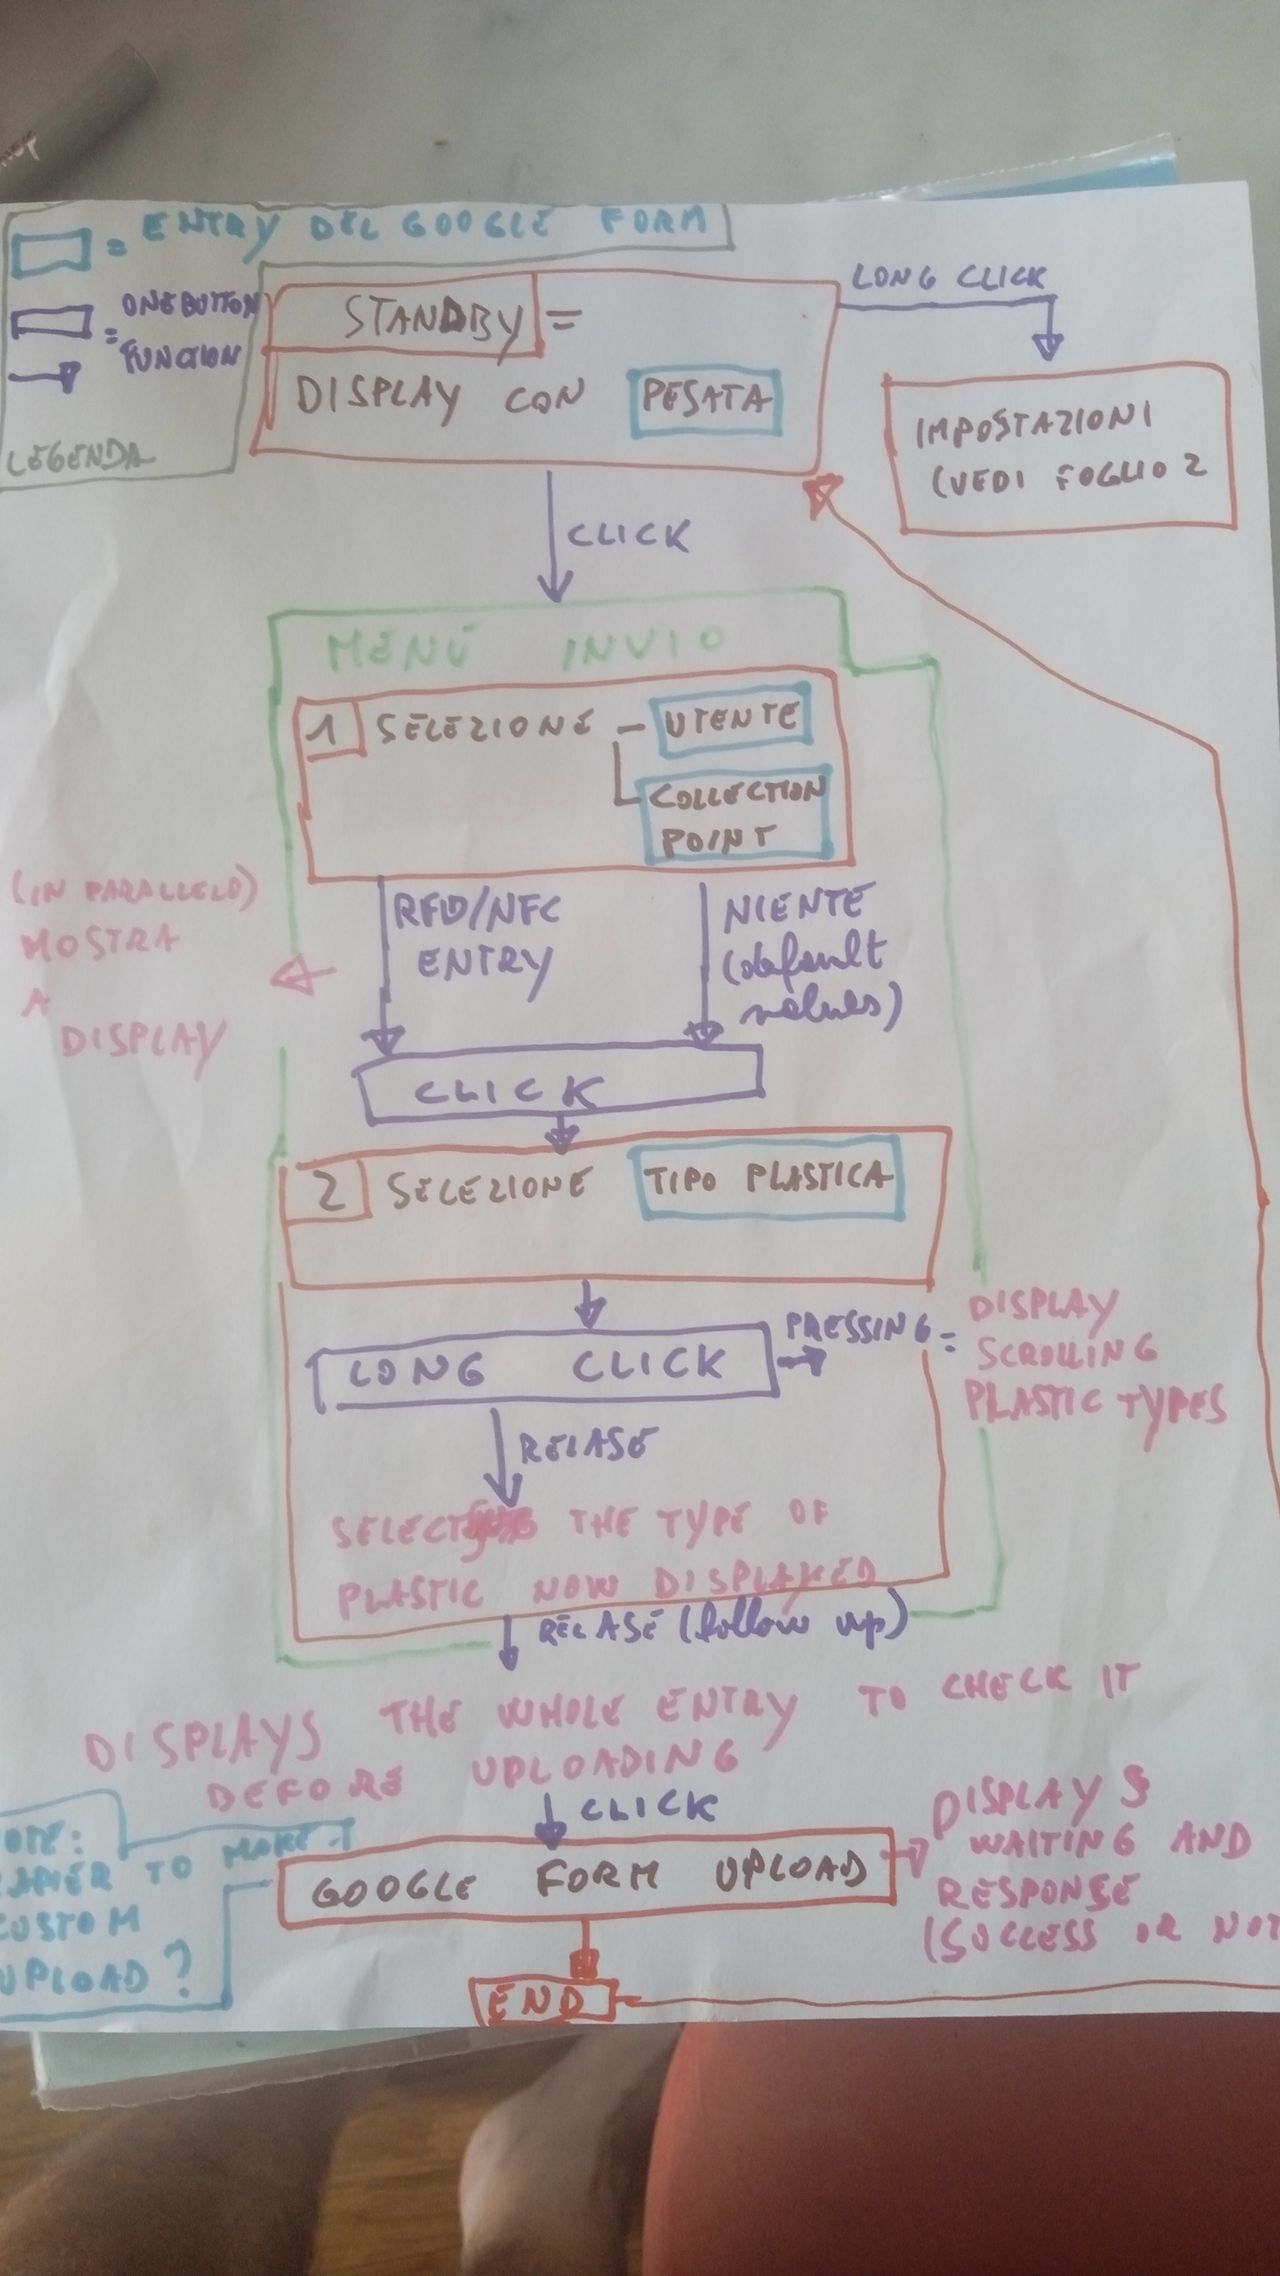 = ENTRY DEL GOOGLE FORM
= ONEBUTTON
FUNCTION
LEGENDA
STANDBY =
DISPLAY CON PESATA
LONG CLICK
IMPOSTAZIONI
(VEDI FOGLIO 2
CLICK
MENÚ INVIO
1 SELEZIONE - UTENTE
COLLECTION
POINT
(IN PARALLELO)
MOSTRA
A
DISPLAY
RFID/NFC
ENTRY
NIENTE
(default
values)
CLICK
2 SELEZIONE TIPO PLASTICA
LONG CLICK
PRESSING =
DISPLAY
SCROLLING
PLASTIC TYPES
RELASE
SELECT THE TYPE OF
PLASTIC NOW DISPLAYED
RELASE (follow up)
DISPLAYS THE WHOLE ENTRY TO CHECK IT
BEFORE UPLOADING
CLICK
GOOGLE FORM UPLOAD
DISPLAYS
WAITING AND
RESPONSE
(SUCCESS OR NOT
TO MAKE
CUSTOM
UPLOAD?
END